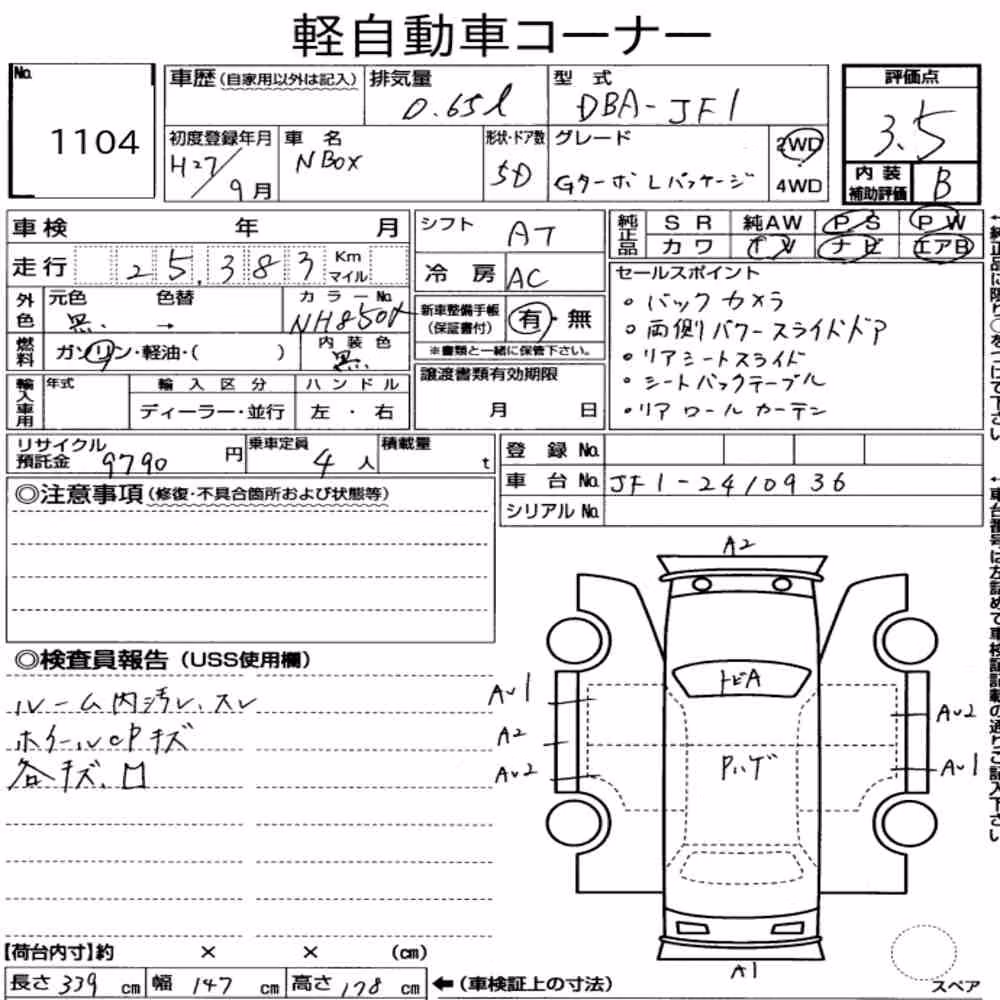 軽自動車コーナー
No. 1104
車歴(自家用以外は記入)
排気量 0.65ℓ
型式 DBA-JF1
評価点 3.5
初度登録年月 H27/9月
車名 NBOX
形状・ドア数 5D
グレード Gターボ Lパッケージ
2WD
4WD
内装補助評価 B
車検 年 月
シフト AT
純正品 SR 純AW PS PW
カワ TV ナビ エアB
走行 25,383 Km マイル
冷房 AC
セールスポイント
・バックカメラ
・両側パワースライドドア
・リアシートスライド
・シートバックテーブル
・リアロールカーテン
外色 元色 黒 色替 → カラーNo. NH850X
新車整備手帳(保証書付) 有・無
※書類と一緒に保管下さい。
燃料 ガソリン・軽油・( )
内装色 黒
譲渡書類有効期限
月 日
輸入車用 年式 輸入区分 ハンドル
ディーラー・並行 左・右
リサイクル預託金 9790円
乗車定員 4人
積載量 t
登録No.
車台No. JF1-2410936
シリアルNo.
◎注意事項(修復・不具合箇所および状態等)
◎検査員報告(USS使用欄)
ルーム内汚レ、スレ
ホイールcPキズ
各キズ、凹
A2
トビA
AU1
A2
AU2
AU2
AU1
Pハゲ
A1
スペア
【荷台内寸】約 × × (cm)
長さ 339 cm 幅 147 cm 高さ 178 cm ←(車検証上の寸法)
←純正品に限り○をつけて下さい
←車台番号は左詰めで車検証記載の通りご記入下さい